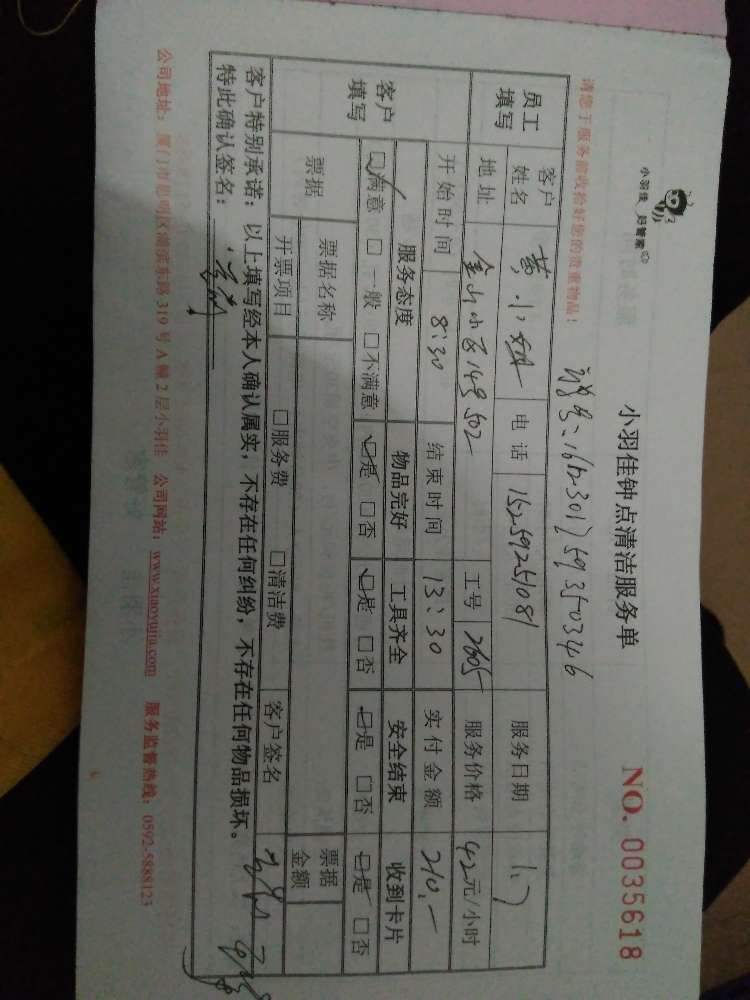 小羽佳 好管家
小羽佳钟点清洁服务单
NO. 0035618
请您于服务前收拾好您的贵重物品!
员工填写
客户姓名
电话 15259251081
服务日期 1.7
地址 金山小区149 502
工号 2605
服务价格 42元/小时
开始时间 8:30
结束时间 13:30
实付金额 210.-
客户填写
服务态度 物品完好 工具齐全 安全结束 收到卡片
☑满意 □一般 □不满意 ☑是 □否 ☑是 □否 ☑是 □否 ☑是 □否
票据
票据名称
票据金额
开票项目 □服务费 □清洁费 客户签名
客户特别承诺:以上填写经本人确认属实,不存在任何纠纷,不存在任何物品损坏。
特此确认签名:
公司地址:厦门市思明区湖滨东路319号A幢2层小羽佳 公司网站:www.xiaoyujia.com 服务监督热线:0592-5888123